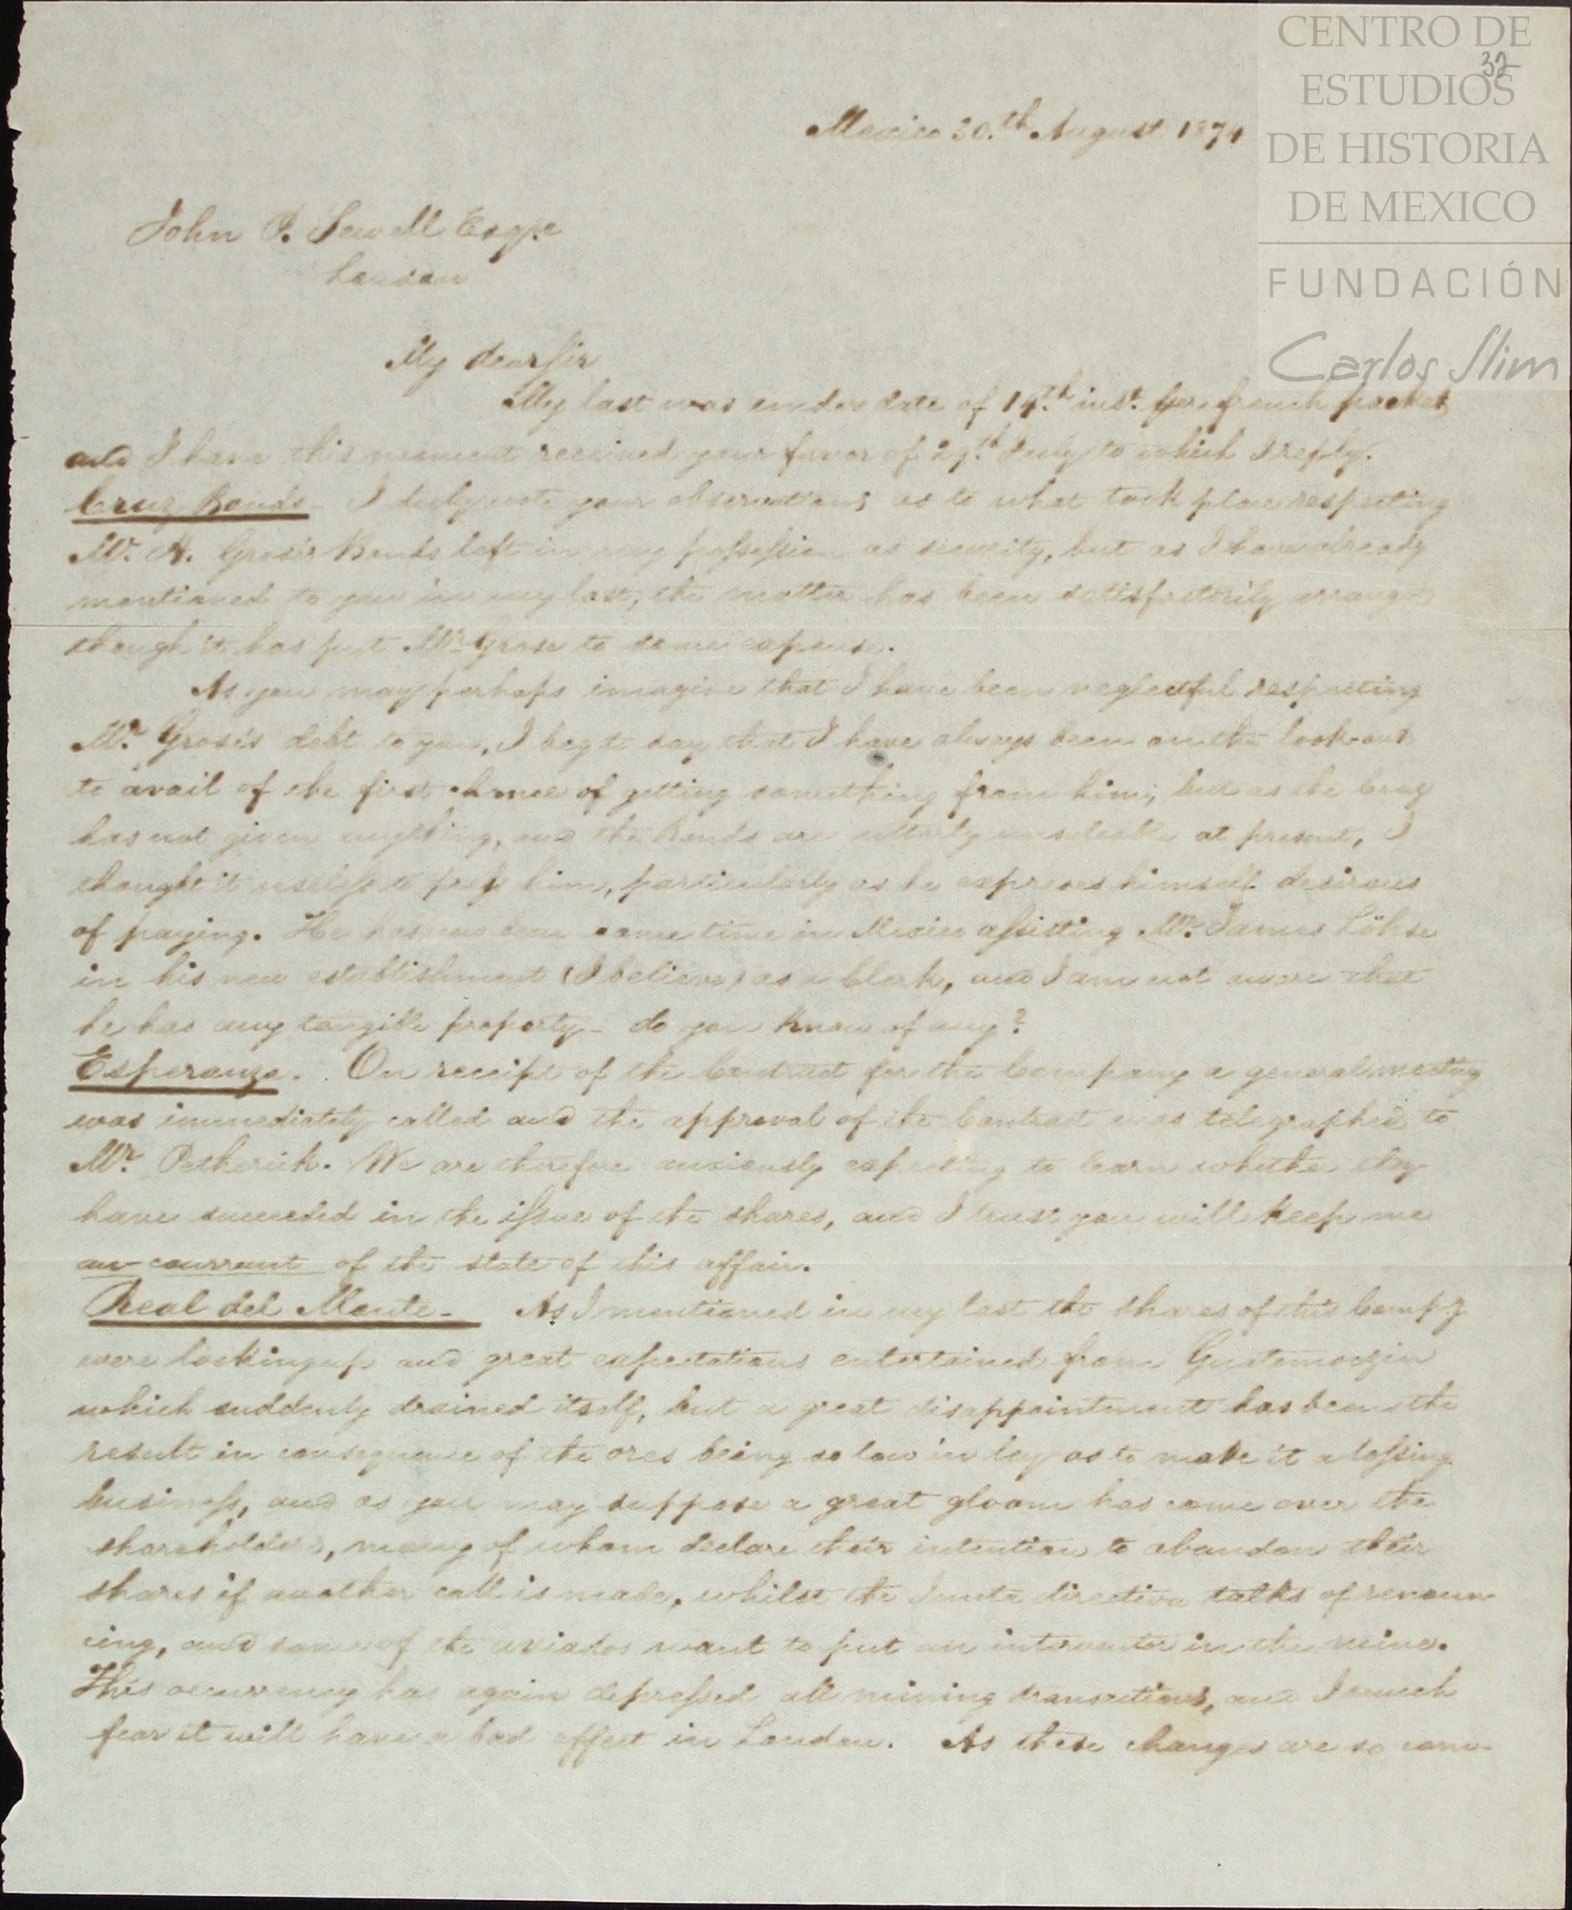 CENTRO DE
ESTUDIOS
DE HISTORIA
DE MEXICO
FUNDACIÓN
Carlos Slim
32
Mexico 30.th August 1874
John P. Sewell Esqre
London
My dear Sir
My last was under date of 19.th inst. per french packet
and I have this moment received your favor of 29.th July to which I reply.
Cruz Bonds. I duly note your observations as to what took place respecting
Mr. A. Grose's Bonds left in my possession as security, but as I have already
mentioned to you in my last, the matter has been satisfactorily arranged
though it has put Mr. Grose to some expense.
As you may perhaps imagine that I have been neglectful respecting
Mr. Grose's debt to you, I beg to say that I have always been on the look-out
to avail of the first chance of getting something from him; but as the Cruz
has not given anything, and the Bonds are utterly unsaleable at present, I
thought it useless to press him, particularly as he expreses himself desirous
of paying. He has now been some time in Mexico assisting Mr. James Löhse
in his new establishment (I believe) as a Clerk, and I am not aware that
he has any tangible property - do you know of any?
Esperanza. On receipt of the Contract for the Company a general meeting
was immediately called and the approval of the Contract was telegraphed to
Mr. Petherick. We are therefore anxiously expecting to learn whether they
have succeeded in the issue of the shares, and I trust you will keep me
au-courrant of the state of this affair.
Real del Monte - As I mentioned in my last the shares of this Compy
were looking up and great expectations entertained from Guatemoczin
which suddenly drained itself, but a great disappointment has been the
result in consequence of the ores being so low in ley as to make it a lossing
business, and as you may suppose a great gloom has come over the
shareholders, many of whom declare their intention to abandon their
shares if another call is made, whilst the Junta directiva talks of renoun-
cing, and some of the aviados want to put an interventor in the mine.
This occurrency has again depressed all mining transactions, and I much
fear it will have a bad effect in London. As these changes are so com-